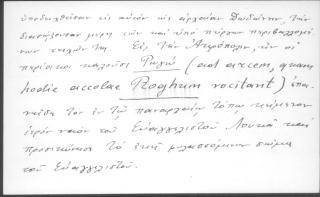 ὑποδεχθεῖσαν εἰς αὐτὸν ὡς ἀρχαίαν Δωδώνην, τὴν
διασώζουσαν μέχρι τῶν καὶ ὑπὸ πύργων περιβαλλομέ
νων τειχῶν της. Εἰς τὴν Ἀκρόπολιν, ἣν οἱ
περίοικοι καλοῦσι Ῥωγὼ (ad arcem, quam
hodie accolae Roghum vocitant) ἐπα
τὸν ἐν τῷ παναρχαίῳ τόπῳ κείμενον
ἱερὸν ναὸν τοῦ Εὐαγγελιστοῦ Λουκᾶ καὶ
προσεκύνησε τὸ ἐκεῖ φυλασσόμενον σῶμα
τοῦ Εὐαγγελιστοῦ.